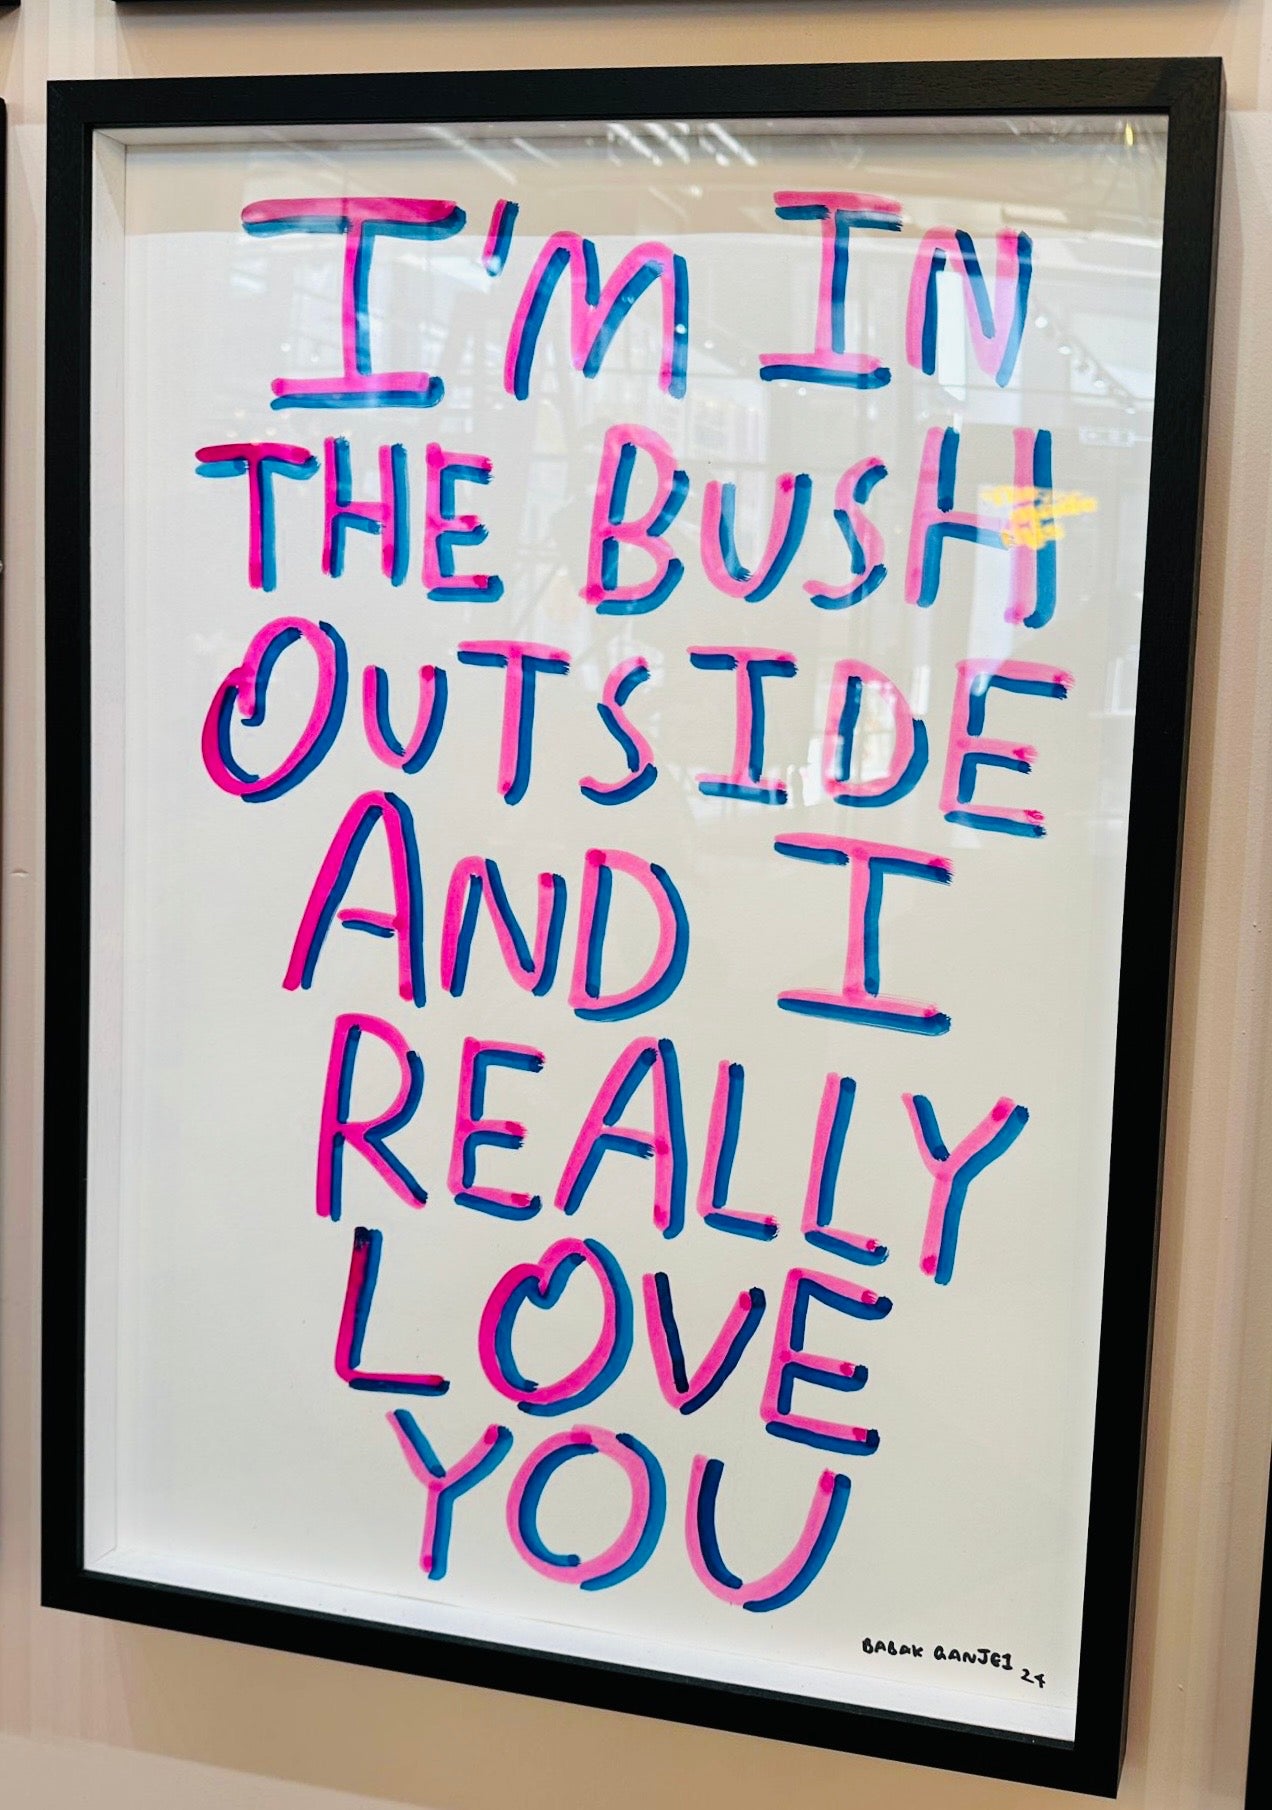 I'M IN
THE BUSH
OUTSIDE
AND I
REALLY
LOVE
YOU
BABAK GANJEI 24